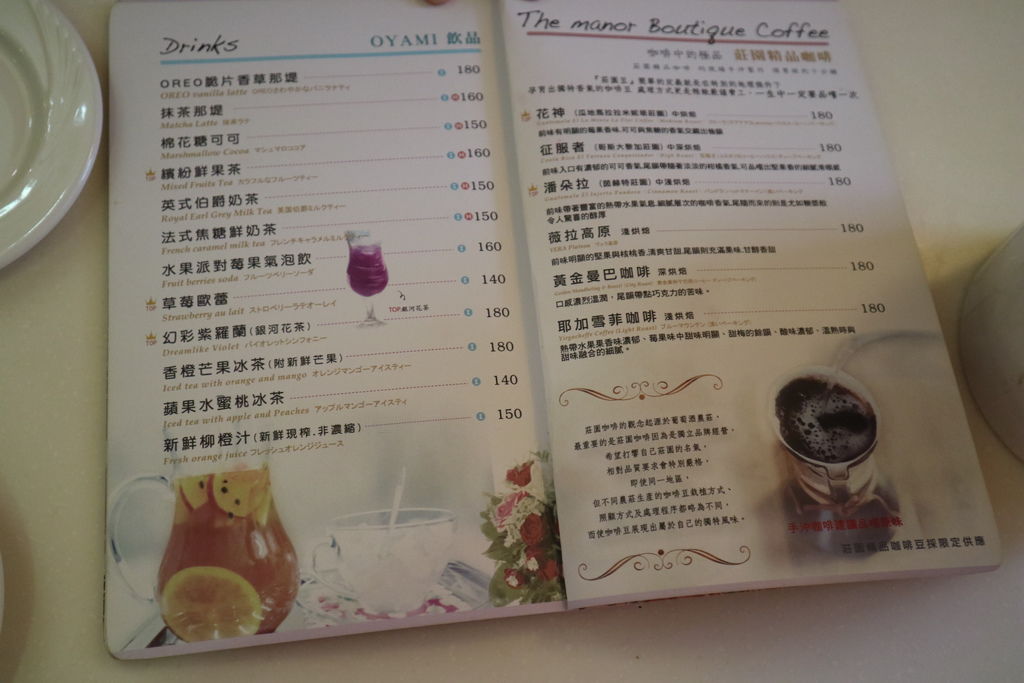 Drinks
OYAMI 飲品
OREO脆片香草那堤 180
OREO vanilla latte
抹茶那堤 160
Matcha Latte 抹茶ラテ
棉花糖可可 150
Marshmallow Cocoa マシュマロココア
TOP 繽紛鮮果茶 160
Mixed Fruits Tea カラフルなフルーツティー
英式伯爵奶茶 150
Royal Earl Grey Milk Tea 英国伯爵ミルクティー
法式焦糖鮮奶茶 150
French caramel milk tea フレンチキャラメルミルクティー
水果派對莓果氣泡飲 160
Fruit berries soda フルーツベリーソーダ
TOP 草莓歐蕾 140
Strawberry au lait ストロベリーラテオーレイ
TOP 幻彩紫羅蘭(銀河花茶) 180
Dreamlike Violet バイオレットシンフォニー
香橙芒果冰茶(附新鮮芒果) 180
Iced tea with orange and mango オレンジマンゴーアイスティー
蘋果水蜜桃冰茶 140
Iced tea with apple and Peaches アップルマンゴーアイスティ
新鮮柳橙汁(新鮮現榨.非濃縮) 150
Fresh orange juice フレッシュオレンジジュース
TOP.銀河花茶
The manor Boutique Coffee
咖啡中的極品 莊園精品咖啡
孕育出獨特香氣的咖啡豆 處理方式更是精緻嚴謹費工,一生中一定要品嚐一次
花神 中烘焙 180
前味有明顯的莓果香味,可可與焦糖的香氣交織出後韻
征服者 中深烘焙 180
潘朵拉 (茵赫特莊園) 中淺烘焙 180
前味帶著豐富的熱帶水果氣息,細膩層次的咖啡香氣,尾韻而來的則是尤如糖漿般
令人驚喜的醇厚
薇拉高原 淺烘焙 180
前味明顯的堅果與核桃香,清爽甘甜,尾韻則充滿果味,甘醇香甜
黃金曼巴咖啡 深烘焙 180
口感濃烈溫潤,尾韻帶點巧克力的苦味。
耶加雪菲咖啡 淺烘焙 180
Yirgacheffe Coffee (Light Roast)
熱帶水果果香味濃郁、莓果味中甜味明顯、甜梅的餘韻、酸味濃郁、溫熱時與
甜味融合的細膩。
莊園咖啡的觀念起源於葡萄酒農莊,
最重要的是莊園咖啡因為是獨立品牌經營,
希望打響自己莊園的名氣,
相對品質要求會特別嚴格,
即使同一地區,
但不同農莊生產的咖啡豆栽植方式、
照顧方式及處理程序都略為不同,
而使咖啡豆展現出屬於自己的獨特風味。
莊園精品咖啡豆採限定供應